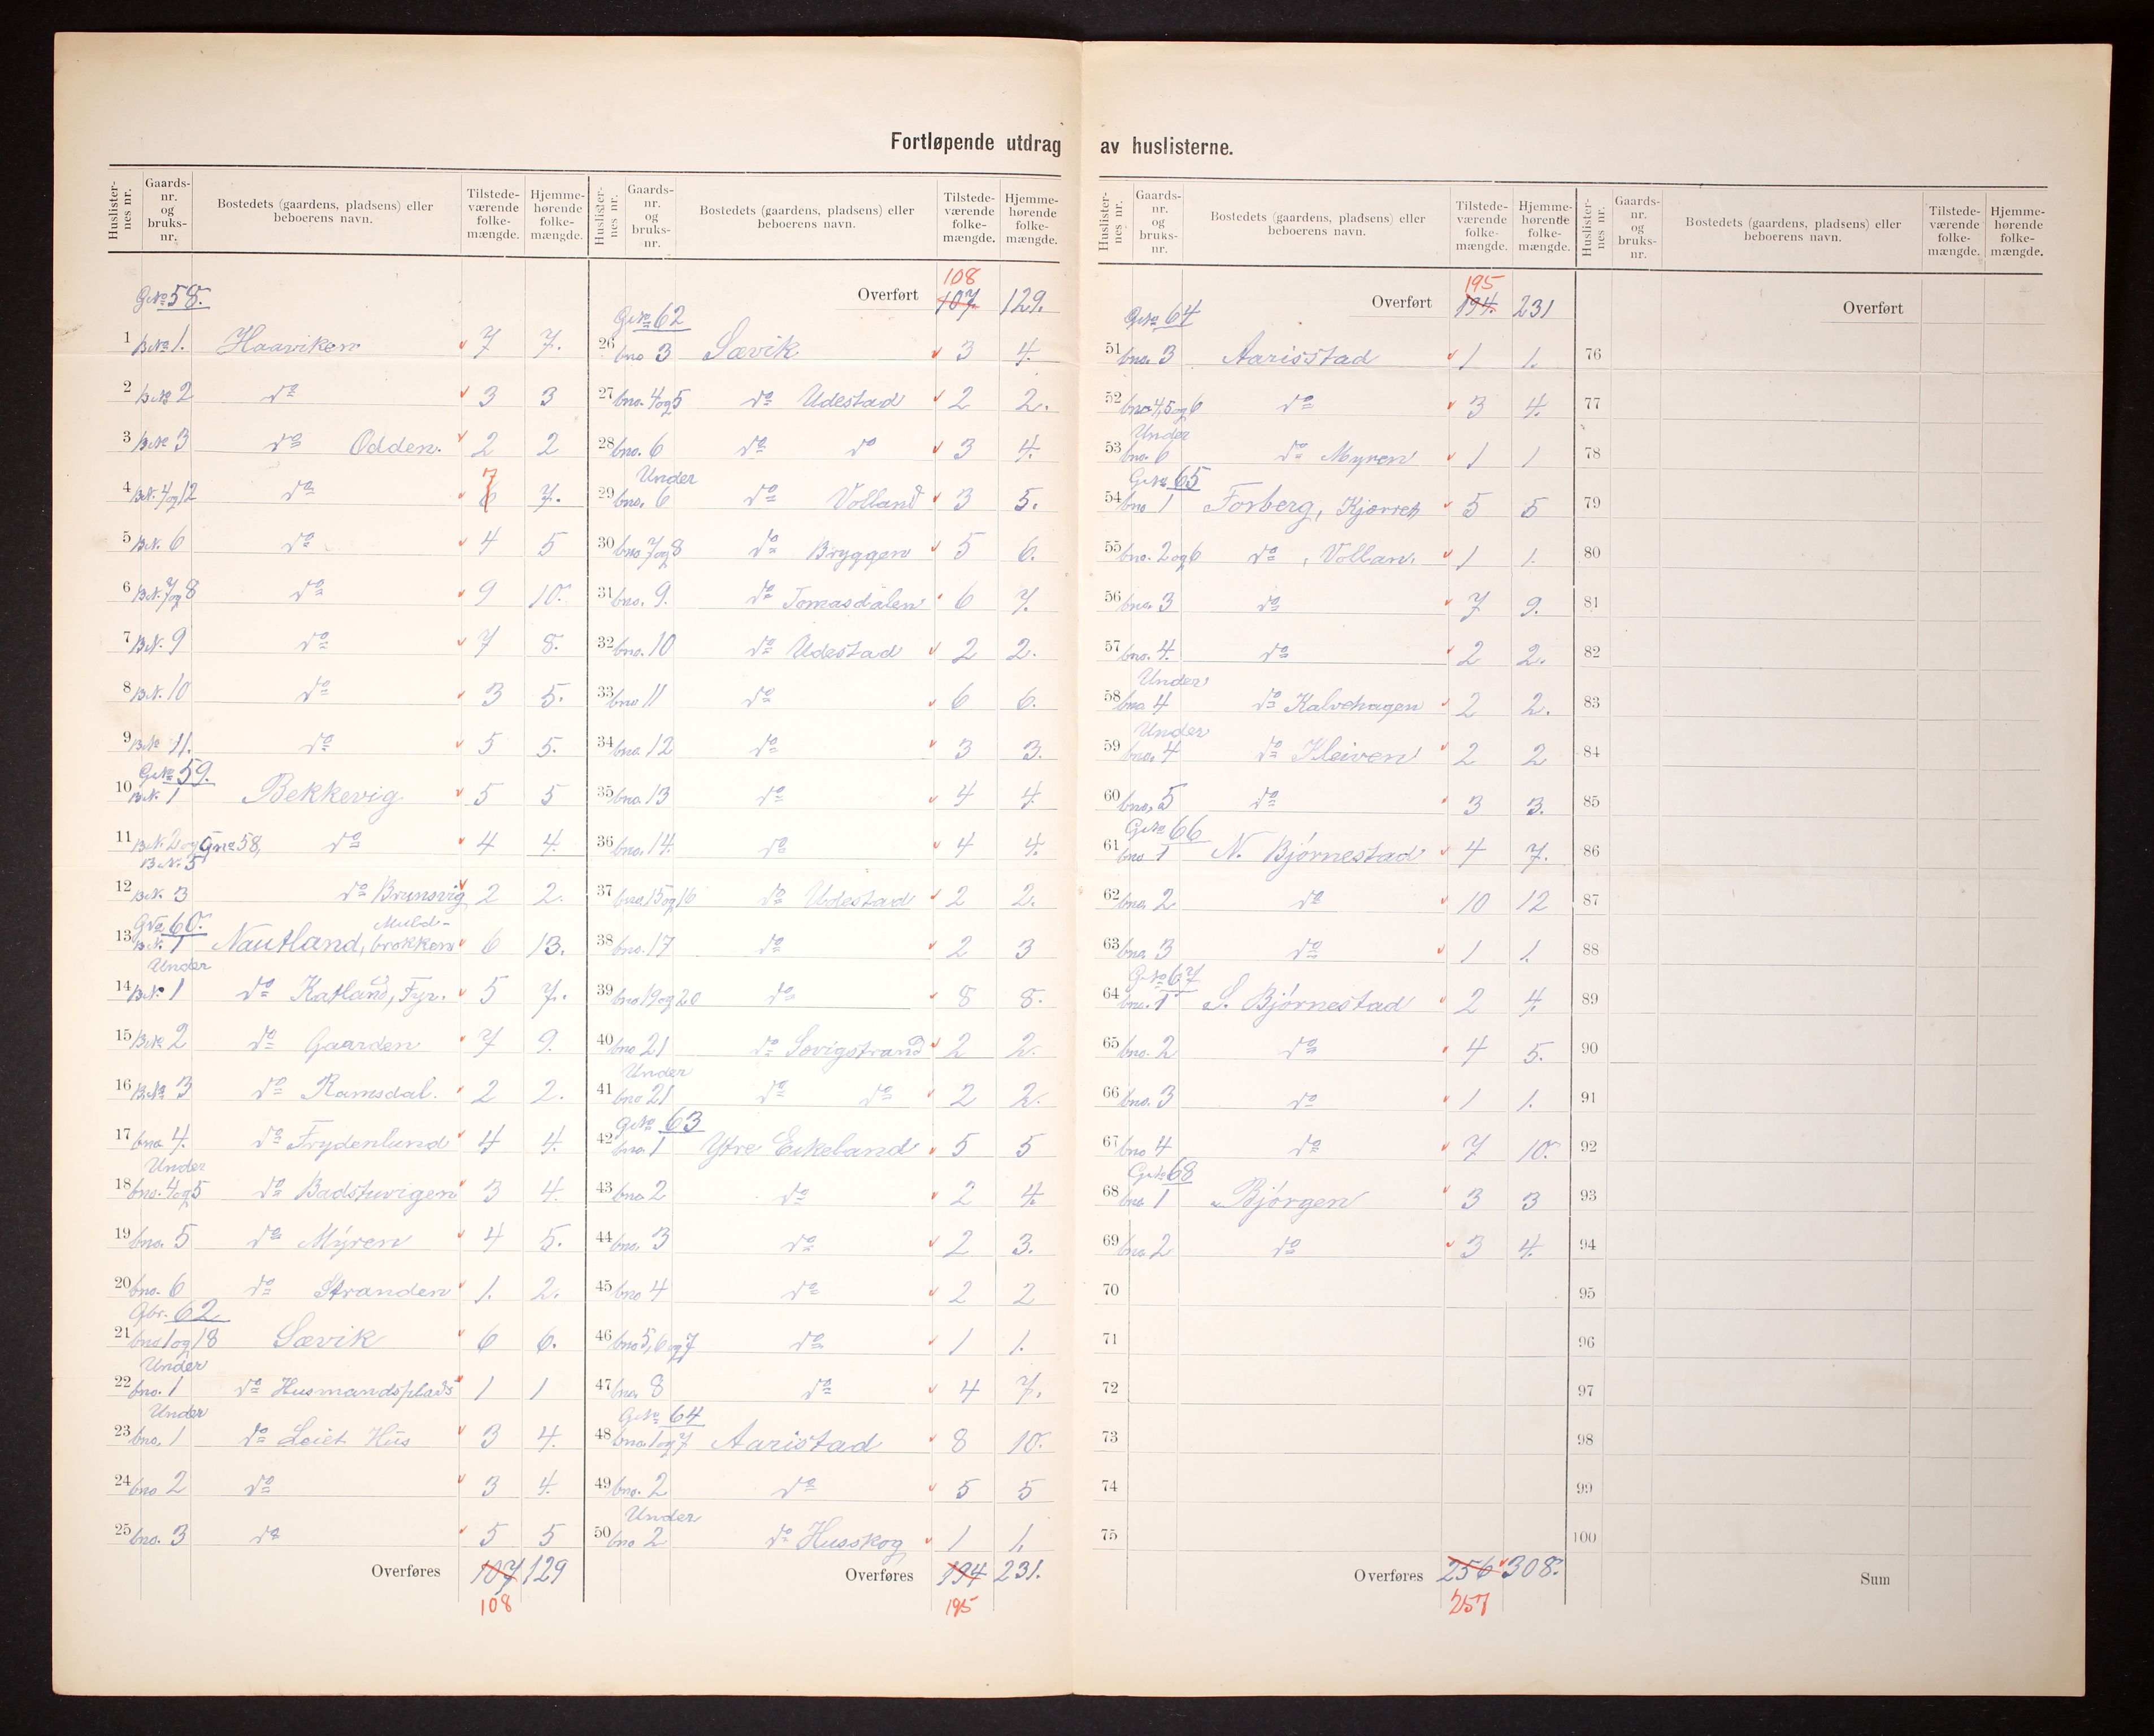 Fortløpende utdrag av huslisterne.
Huslister-nes nr. Gaards-nr. og bruks-nr. Bostedets (gaardens, pladsens) eller beboerens navn. Tilstede-værende folke-mængde. Hjemme-hørende folke-mængde.
Gno 58.
1 Bno 1. Haaviken 7 7.
2 B.No 2 do 3 3
3 B.No 3 do Odden. 2 2
4 B.N. 4 og 12 do 6 7 7.
5 B.N. 6 do 4 5
6 B.N. 7 og 8 do 9 10.
7 B.N. 9 do 7 8.
8 B.N. 10 do 3 5.
9 B.No 11. do 5 5.
Gno 59.
10 B.N. 1 Bekkevig 5 5
11 B.N. 2 og Gno 58, do 4 4.
B.N. 5
12 B.N. 3 do Brunsvig 2 2.
Gno 60. Muld-
13 B.N. 1 Nautland, brokken 6 13.
Under
14 B.N. 1 do Katland, Fyr. 5 7.
15 B.No 2 do Gaarden 7 9.
16 B.No 3 do Ramsdal. 2 2.
17 bno 4. do Frydenlund 4 4.
Under
18 bno. 4 og 5 do Badstuvigen 3 4.
19 bno. 5 do Myren 4 5.
20 bno. 6 do Stranden 1. 2.
Gbr. 62
21 bno 1 og 18 Sævik 6 6.
Under
22 bno. 1 do Husmandsplads 1 1
Under
23 bno. 1 do Leiet Hus 3 4.
24 bno 2 do 3 4.
25 bno. 3 do 5 5
Overføres 107 129
108
Huslister-nes nr. Gaards-nr. og bruks-nr. Bostedets (gaardens, pladsens) eller beboerens navn. Tilstede-værende folke-mængde. Hjemme-hørende folke-mængde.
108
Overført 107. 129.
Gno 62
26 bno 3 Sævik 3 4.
27 bno. 4 og 5 do Udestad 2 2.
28 bno. 6 do do 3 4.
Under
29 bno. 6 do Volland 3 5.
30 bno 7 og 8 do Bryggen 5 6.
31 bno. 9. do Tomasdalen 6 7.
32 bno. 10 do Udestad 2 2.
33 bno 11 do 6 6.
34 bno. 12 do 3 3.
35 bno. 13 do 4 4.
36 bno. 14. do 4 4.
37 bno 15 og 16 do Udestad 2 2.
38 bno. 17 do 2 3
39 bno 19 og 20 do 8 8.
40 bno 21 do Sovigstrand 2 2.
Under
41 bno 21 do do 2 2.
Gno 63
42 bno. 1 Ytre Eikeland 5 5
43 bno 2 do 2 4.
44 bno. 3 do 2 3.
45 bno 4 do 2 2
46 bno 5, 6 og 7 do 1 1.
47 bno 8 do 4 7.
Gno 64
48 bno. 1 og 7 Aaristad 8 10.
49 bno. 2 do 5 5
Under
50 bno 2 do Husskog 1 1.
Overføres 194 231.
195
Huslister-nes nr. Gaards-nr. og bruks-nr. Bostedets (gaardens, pladsens) eller beboerens navn. Tilstede-værende folke-mængde. Hjemme-hørende folke-mængde.
195
Overført 194. 231
Gno 64
51 bno. 3 Aarisstad 1 1.
52 bno 4, 5 og 6 do 3 4.
Under
53 bno. 6 do Myren 1 1
Gno 65
54 bno 1 Forberg, Kjørren 5 5
55 bno. 2 og 6 do, Vollan. 1 1.
56 bno. 3 do 7 9.
57 bno. 4. do 2 2.
Under
58 bno 4 do Kalvehagen 2 2.
Under
59 bno. 4 do Kleiven 2 2
60 bno. 5 do 3 3.
Gno 66
61 bno 1 N. Bjørnestad 4 7.
62 bno. 2 do 10 12
63 bno. 3 do 1 1.
Gno 67
64 bno. 1 S. Bjørnestad 2 4.
65 bno. 2 do 4 5.
66 bno. 3 do 1 1.
67 bno 4 do 7 10.
Gno 68
68 bno 1 Bjørgen 3 3
69 bno 2 do 3 4.
70
71
72
73
74
75
Overføres 256 308.
257
Huslister-nes nr. Gaards-nr. og bruks-nr. Bostedets (gaardens, pladsens) eller beboerens navn. Tilstede-værende folke-mængde. Hjemme-hørende folke-mængde.
Overført
76
77
78
79
80
81
82
83
84
85
86
87
88
89
90
91
92
93
94
95
96
97
98
99
100
Sum